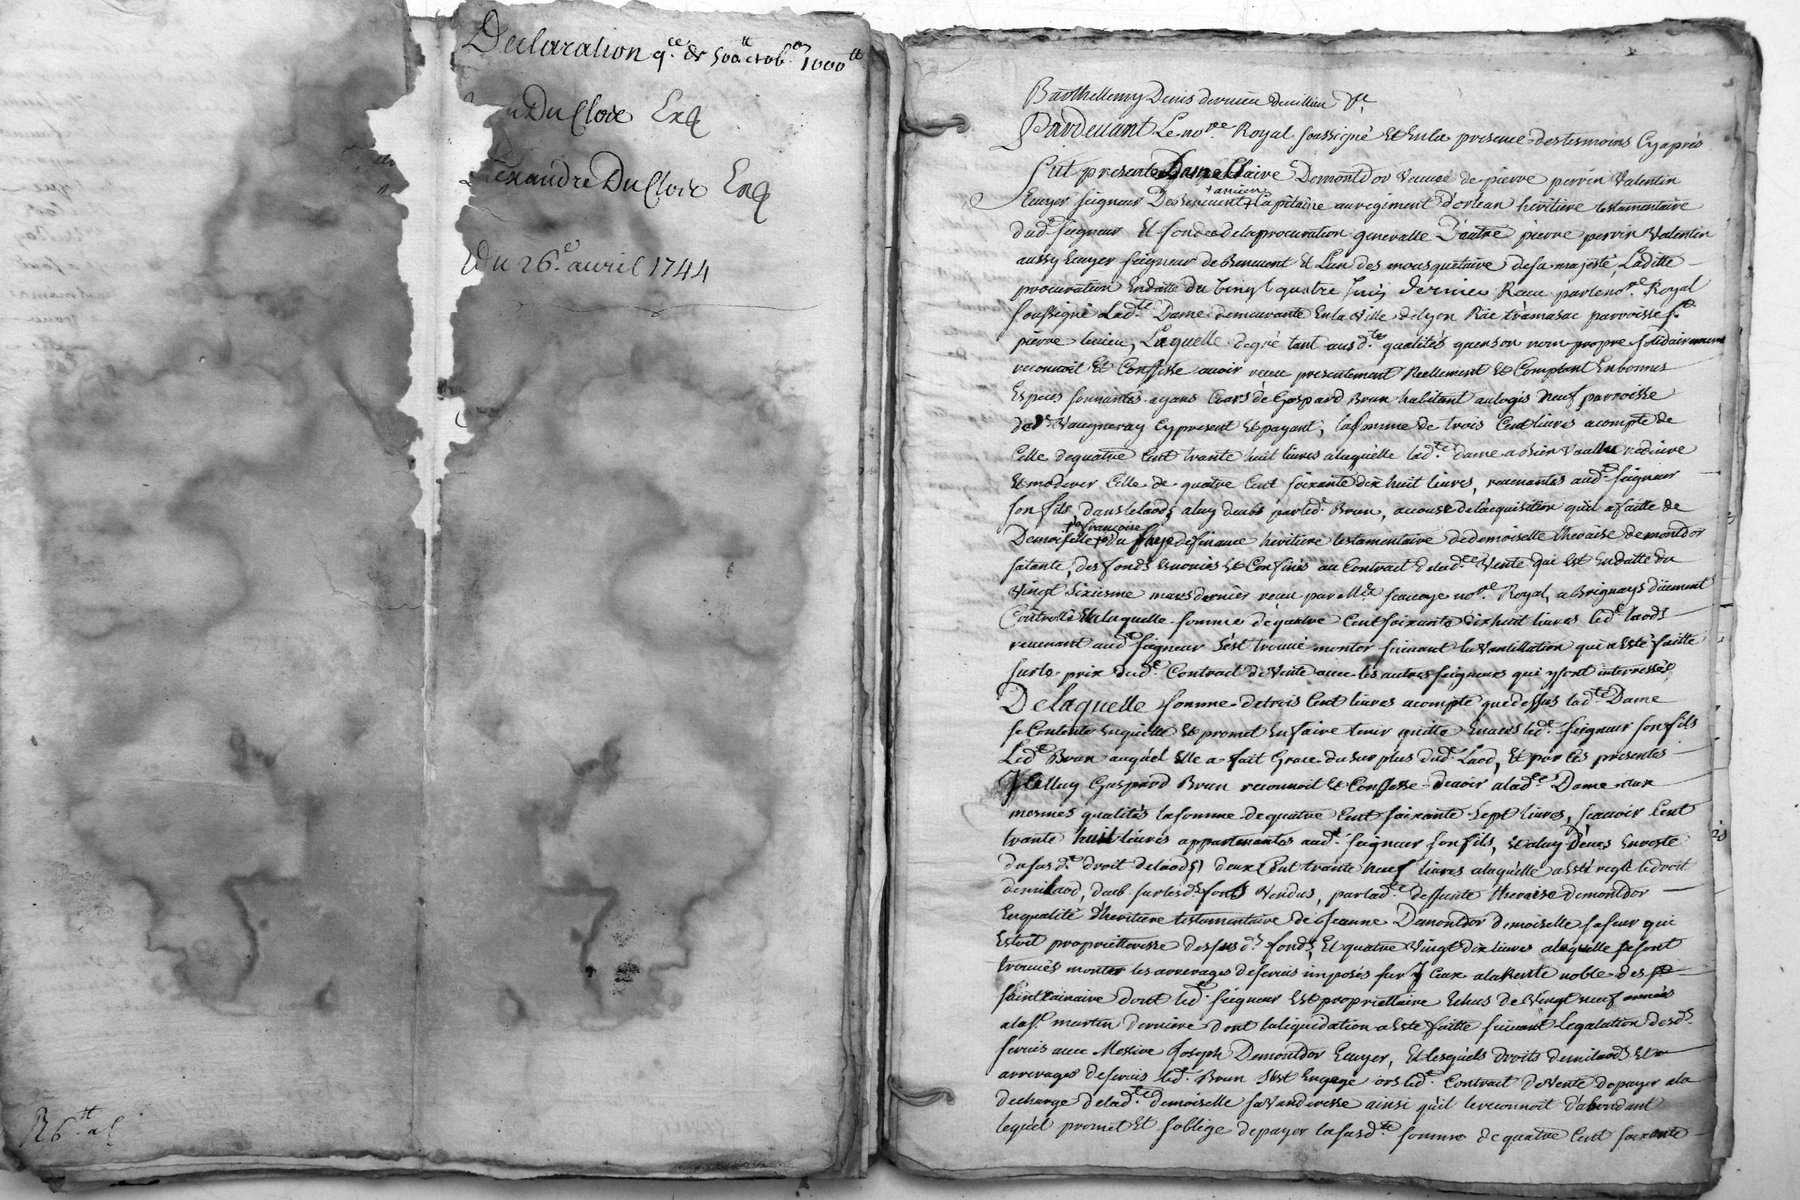 Declaration q.ce de 500 et ob.on 1000
Du Cloix Ecu
exandre Du Cloix Ecu
Du 26.e avril 1744
R 26
Barthellemy Denis dernieu
Pardevant Le no.re Royal soussigné et En la presence des tesmoins Cy aprés
fut presente Dame Claire Demontdor veuve de pierre perrin Valentin
Ecuyer seigneur De benevent + ancien Capitaine au regiment d'orlean heritiere testamentaire
dud. seigneur Et fondée de la procuration generalle D'autre pierre perrin Valentin
aussy Ecuyer seigneur de Benevent Et L'un des mousquetaire de sa majesté Laditte
procuration En datte du vingt quatre Juin dernier Receu par le no.re Royal
soussigné Lad.te Dame demeurante En la Ville de Lyon Rue tramasac parroisse s.t
pierre levieu, Laquelle de gré tant ausd.tes qualités qu'en son nom propre solidairement
reconnoit Et Confesse avoir receu presentement Reellement Et Comptant En bonnes
Especes sonnantes ayans Cours de Gaspard Brun habitant au logis neuf parroisse
de Vaugneray Cy present Et payant, la somme de trois Cent livres a compte de
Celle de quatre Cent trante huit livres a laquelle lad.te dame a bien voullu reduire
Et moderer Celle de quatre Cent soixante dix huit livres, revenantes aud. seigneur
son fils dans le laods a luy deubs par led. Brun, a cause de l'acquisition qu'il a faitte de
Demoiselle françoise Du faye definance heritiere testamentaire de demoiselle theraise demontdor
sa tante, des fonds Enoncés Et Confinés au Contract de lad.te Vente qui Est En datte du
vingt sixiesme mars dernier receu par M.e sauvage no.re Royal, a Brignays düement
Controllé a laquelle somme de quatre Cent soixante dix huit livres led. laods
revenant aud. seigneur s'est trouvé monter suivant la Vantillation qui a Esté faitte
sur le prix dud. Contract de Vente avec les autres seigneurs qui y sont interressés
De laquelle somme de trois Cent livres a compte que dessus lad.te Dame
se Contente En quitte Et promet En faire tenir quitte Envers led. seigneur son fils
Led. Brun auquel Elle a fait Grace du sur plus dud. Laod, Et par Ces presentes
Icelluy Gaspard Brun reconnoit Et Confesse devoir a lad.te Dame aux
mesmes qualités la somme de quatre Cent soixante sept livres, scavoir Cent
trante huit livres appartenantes aud. seigneur son fils, Et a luy deues En reste
du susd. droit de laods, deux Cent trante neuf livres a laquelle a Esté reglé le droit
demilaod, deub sur lesd. fonds vendus, par lad.te deffunte theraise demontdor
En qualité d'heritiere testamentaire de Jeanne Demontdor demoiselle sa seur qui
Estoit proprietteresse des susd. fonds, Et quatre vingt dix livres a laquelle se sont
trouvés monter les arrerages de servis imposés sur Iceux a la Rente noble des
dont led. seigneur Est propriettaire Echus de vingt neuf années
a la s.t martin derniere dont la liquidation a Esté faitte suivant des d.s
servis avec Messire Joseph Demontdor Ecuyer, Et lesquels droits demilaods Et
arrerages de servis led. Brun s'est Engagé led. Contract de Vente de payer a la
decharge de lad.te demoiselle sa vanderesse ainsi qu'il le reconnoit d'abondant
lequel promet Et s'oblige de payer la susd.te somme de quatre Cent soixante